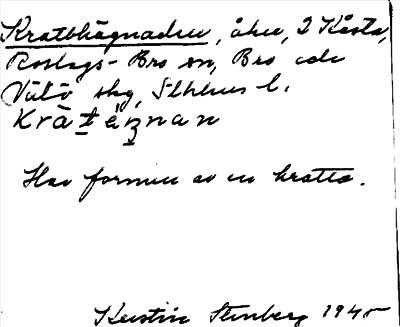 Kratthägnaden, åker, 2 Kåsta,
Roslags-Bro sn, Bro och
Vätö skg, Sthlms l.
Kràtäɳnan
Har formen av en kratta.
Kerstin Stenberg 1945